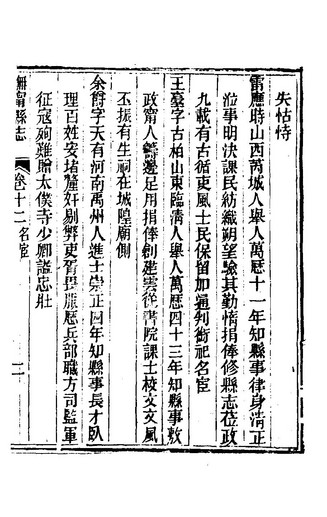 失怙恃
雷應時山西芮城人舉人萬歷十一年知縣事律身清正
涖事明決課民紡織朔望驗其勤惰捐俸修縣志莅政
九載有古循吏風士民保留加通判銜祀名宦
王臺字古柏山東臨清人舉人萬歷四十三年知縣事敷
政甯人籌邊足用捐俸創建雲從書院課士校文文風
丕振有生祠在城隍廟側
余爵字天有河南禹州人進士崇正四年知縣事長才臥
理百姓安堵釐奸剔弊吏胥畏服歷兵部職方司監軍
征寇殉難贈太僕寺少卿諡忠壯
撫甯縣志
卷十二 名宦